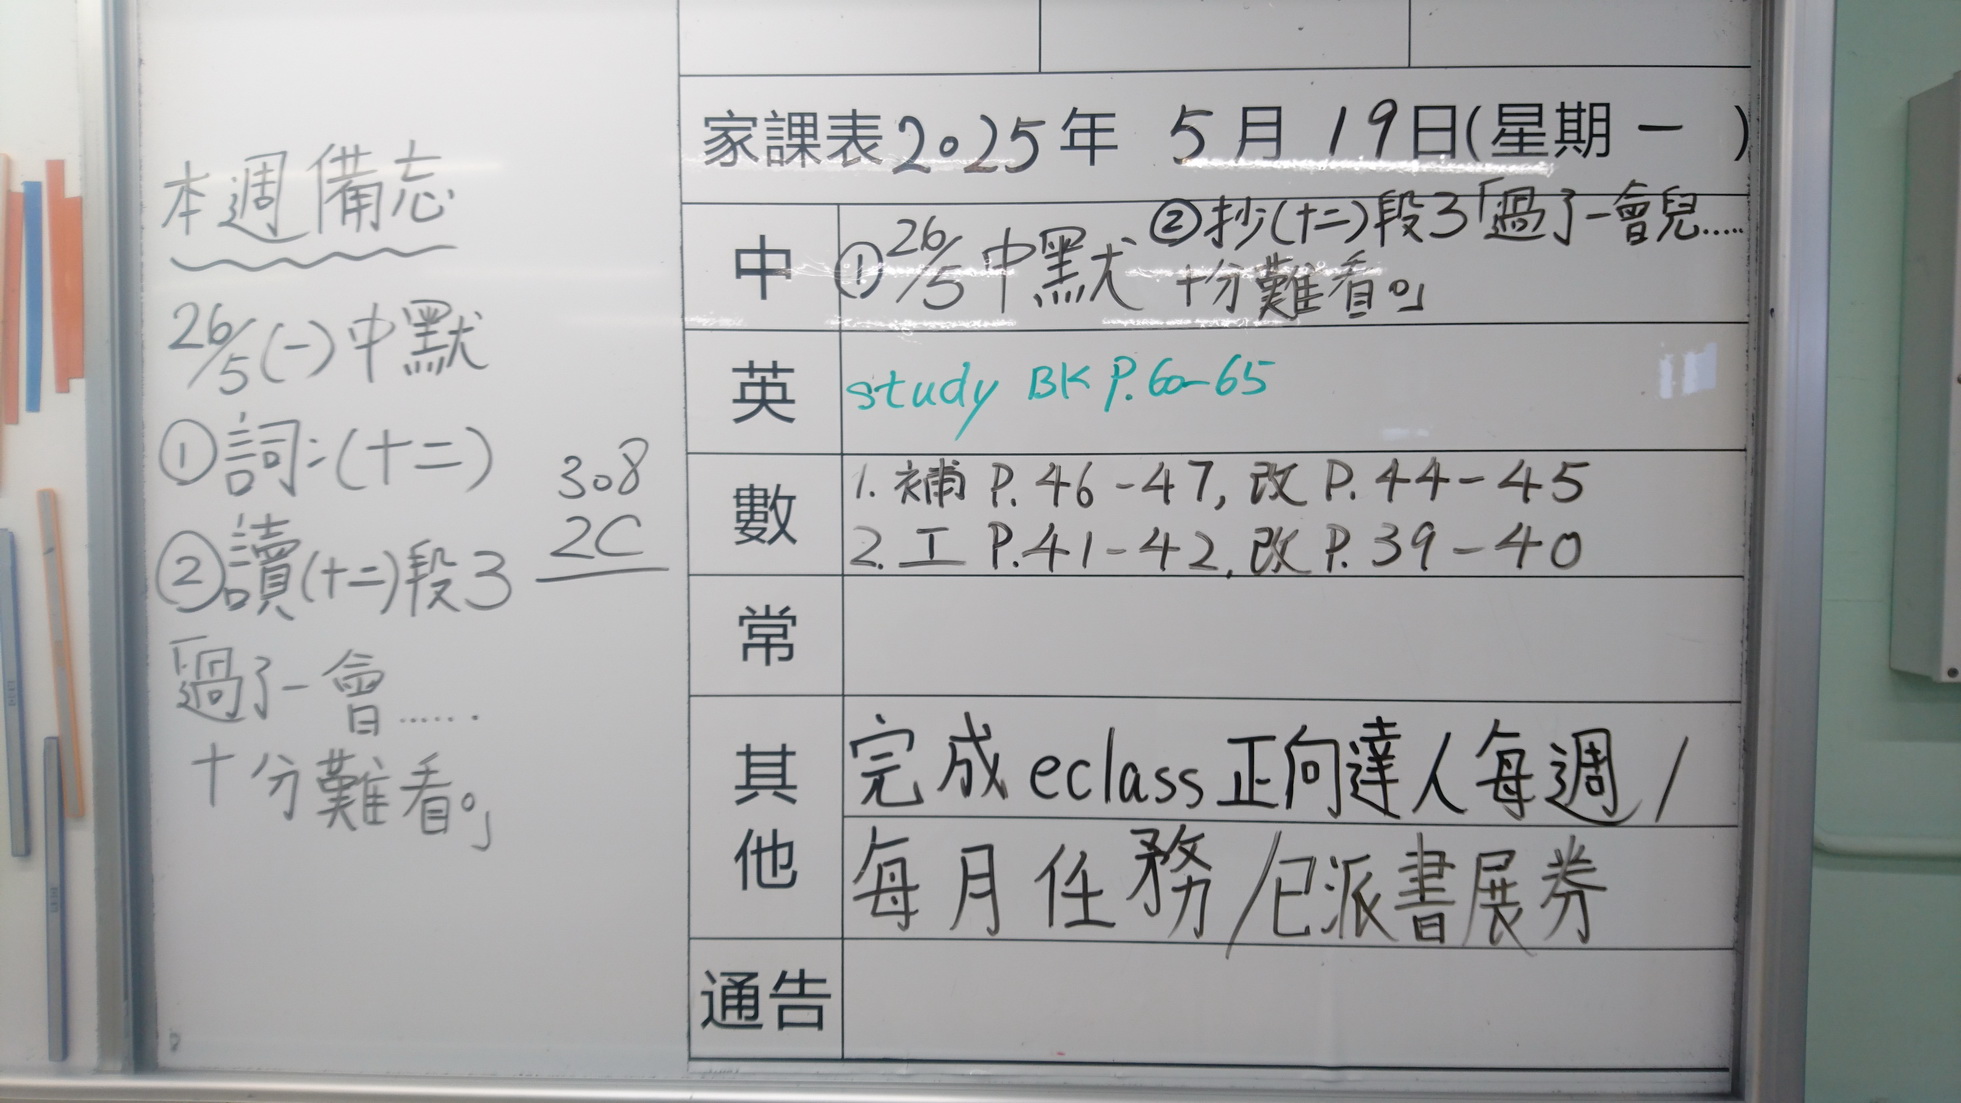 本週備忘
26/5(一)中默
①詞:(十二)
②讀(十二)段3
「過了一會……
十分難看。」
308
2C
家課表2025年 5月19日(星期一 )
中
①26/5中默
②抄(十二)段3「過了一會兒……
十分難看。」
英
study BK P.60-65
數
1. 補 P.46-47, 改 P.44-45
2. 工 P.41-42, 改 P.39-40
常
其他
完成eclass正向達人每週/
每月任務/已派書展券
通告